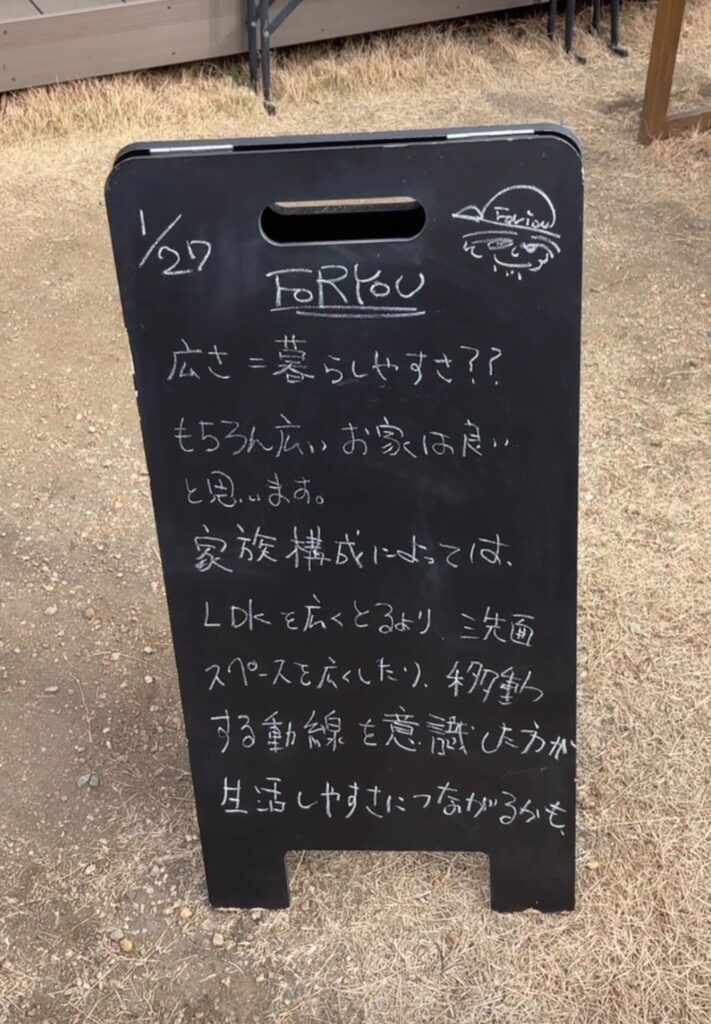 1/27
Foriou
FORYOU
広さ=暮らしやすさ??
もちろん広いお家は良い
と思います。
家族構成によっては、
LDKを広くとるより、洗面
スペースを広くしたり、移動
する動線を意識した方が
生活しやすさにつながるかも、